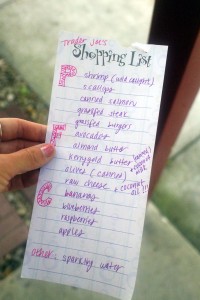 Trader Joe's
Shopping List
P
shrimp (wild caught)
scallops
canned salmon
grassfed steak
grassfed burgers
F
avocados
almond butter
kerrygold butter
olives (canned)
raw cheese + coconut oil!!!
C
bananas
blueberries
raspberries
apples
other: sparkling water